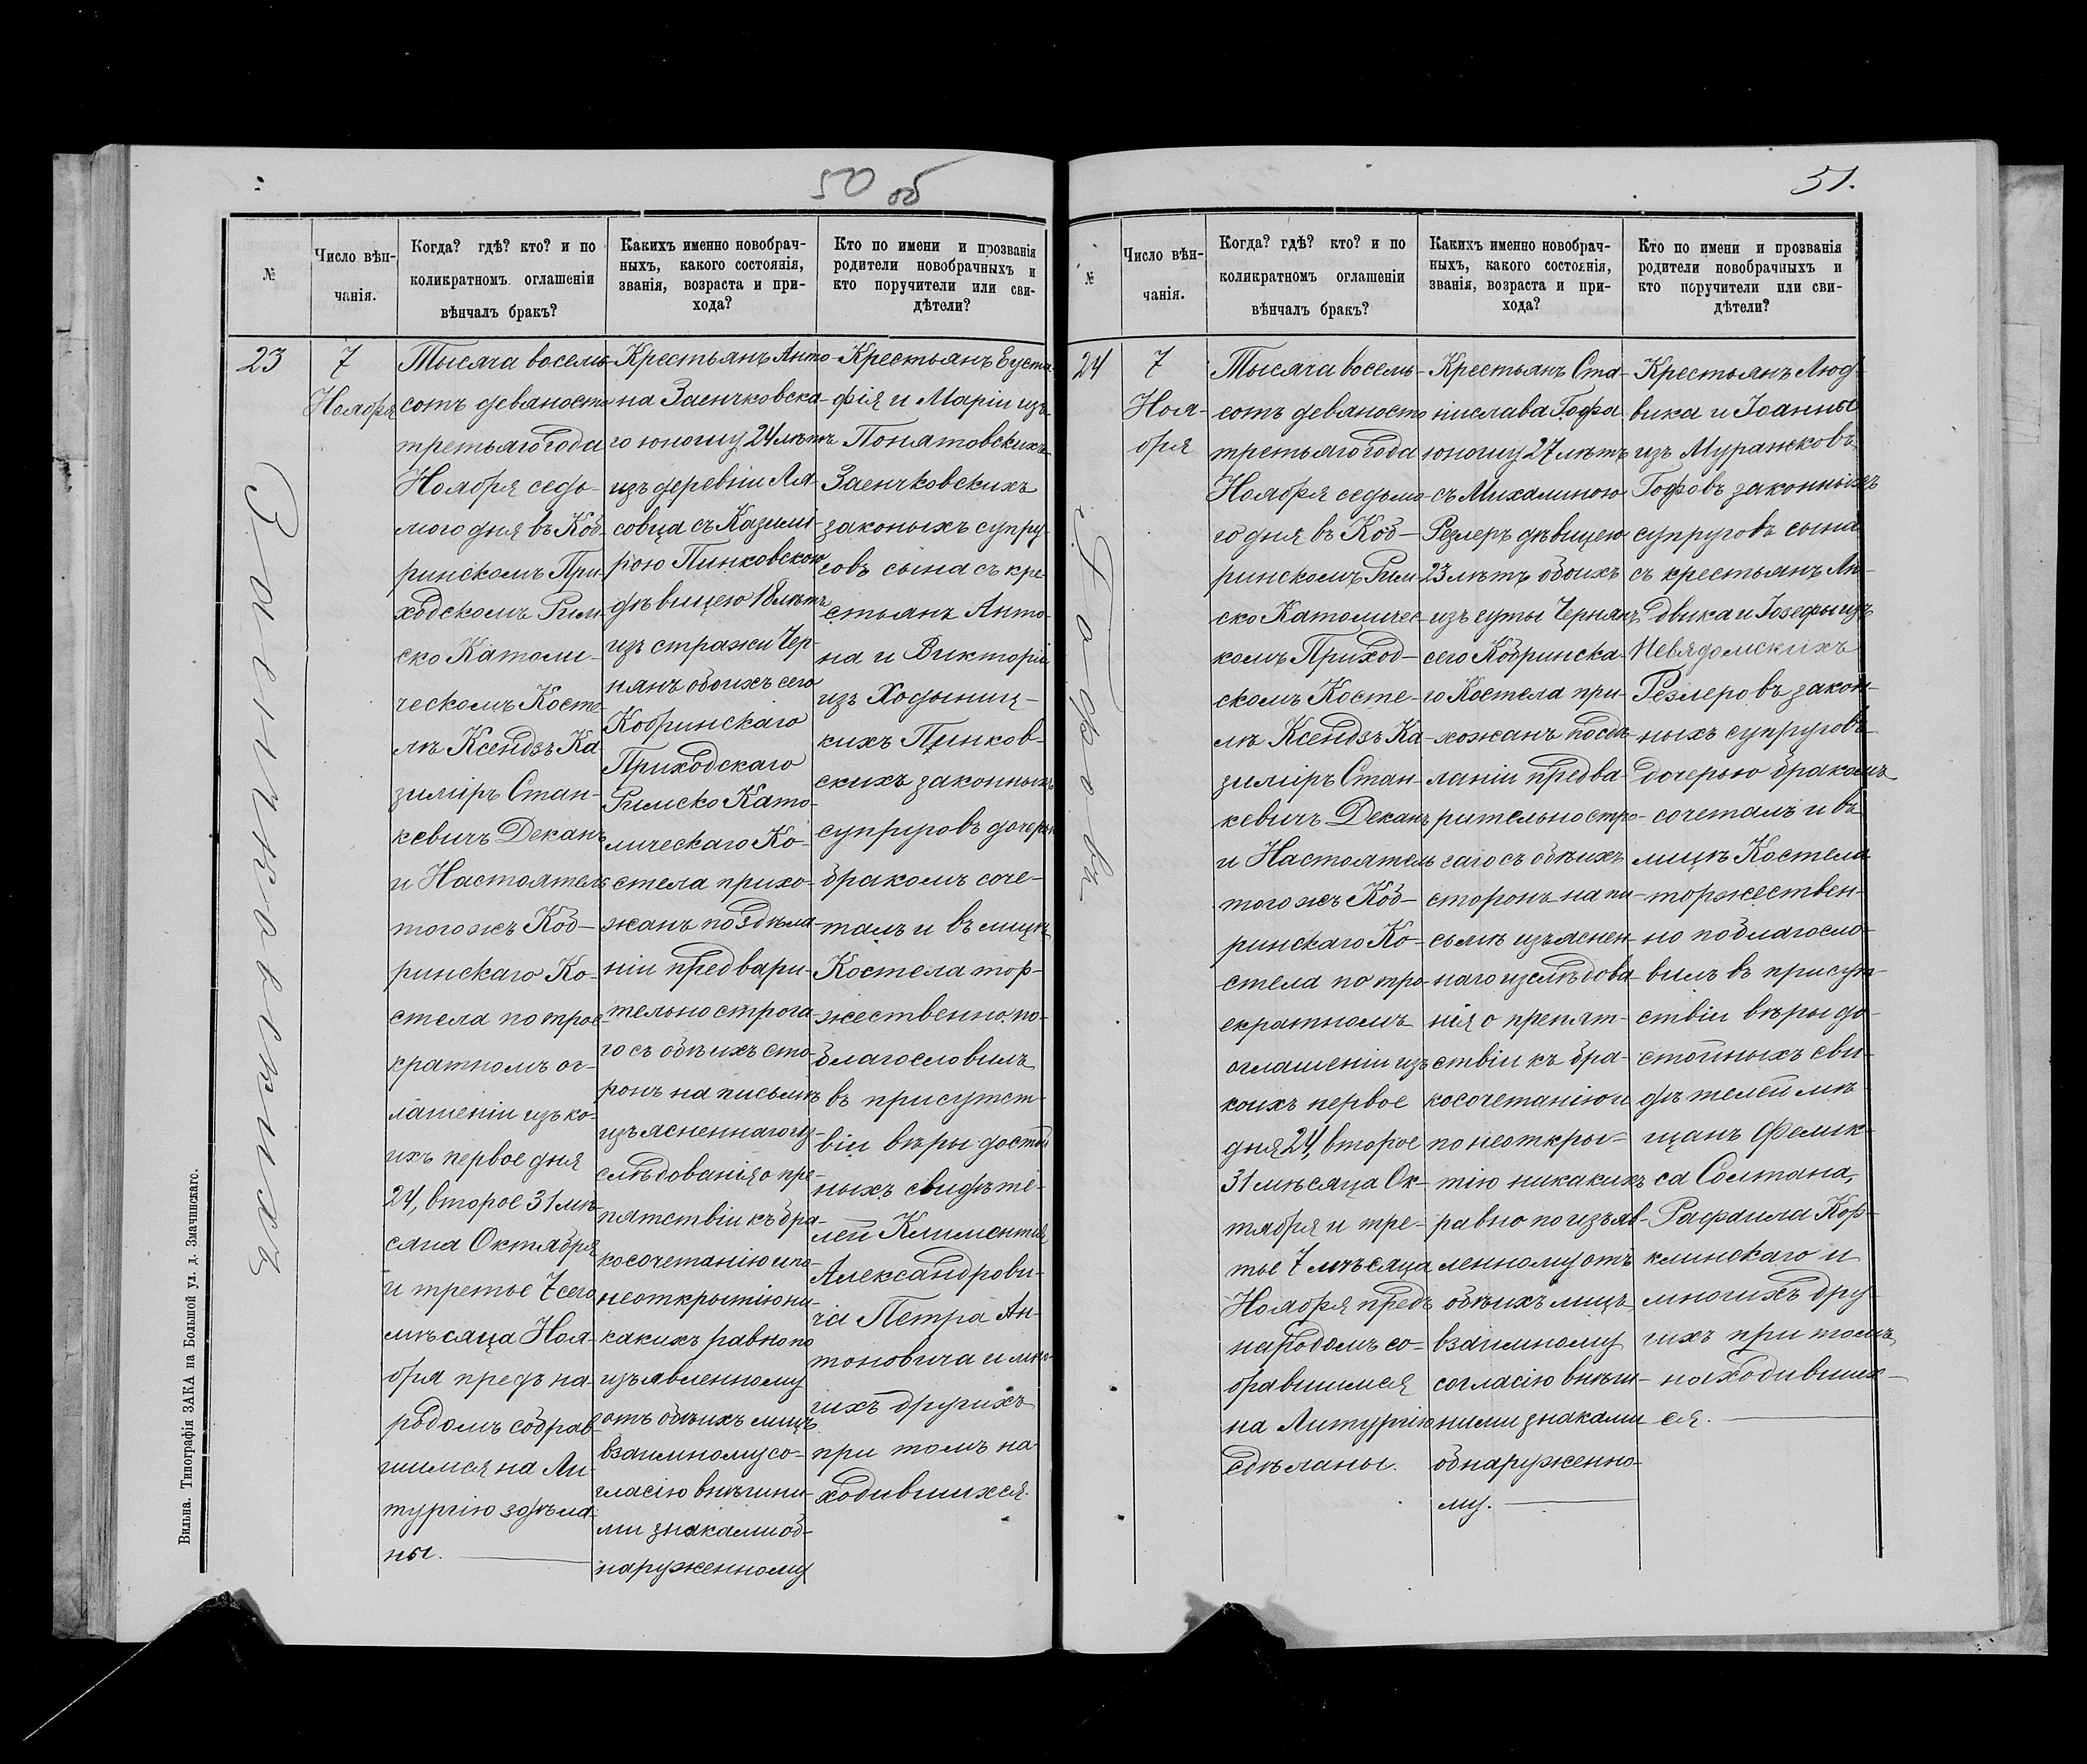 50 об
№
Число вѣн-
чанія.
Когда? гдѣ? кто? и по
коликратномъ оглашеніи
вѣнчалъ бракъ?
Какихъ именно новобрач-
ныхъ, какого состоянія,
званія, возраста и при-
хода?
Кто по имени и прозванія
родители новобрачныхъ и
кто поручители или сви-
дѣтели?
23
Заенчковскихъ
7
Ноября
Тысяча восемь-
сотъ девяносто
третьяго года
Ноября седь-
мого дня въ Коб-
ринскомъ При-
ходскомъ Рим-
ско Католи-
ческомъ Косте-
лѣ Ксендзъ Ка-
зиміръ Стан-
кевичъ Деканъ
и Настоятель
того жъ Коб-
ринскаго Ко-
стела по трое-
кратномъ ог-
лашеніи изъ ко-
ихъ первое дня
24, второе 31 мѣ-
сяца Октября
и третье 7 сего
мѣсяца Ноя-
бря предъ на-
родомъ собрав-
шимся на Ли-
тургію здѣла-
ны.
Крестьянъ Анто-
на Заенчковска-
го юношу 24 лѣтъ
изъ деревни Ля-
совца съ Казимі-
рою Пинковскою
дѣвицею 18 лѣтъ
изъ стражи Чер-
нянъ обоихъ сего
Кобринскаго
Приходскаго
Римско Като-
лическаго Ко-
стела прихо-
жанъ по здѣла-
ніи предвари-
тельно строга-
го съ обѣихъ сто-
ронъ на письмѣ
изъясненнаго из-
слѣдованія о пре-
пятствіи къ бра-
косочетанію и по
неоткрытію ни-
какихъ равно по
изъявленному
отъ обѣихъ лицъ
взаимному со-
гласію внѣшни-
ми знаками об-
наруженному
Крестьянъ Еуста-
фія и Маріи изъ
Понятовскихъ
Заенчковскихъ
законыхъ супру-
говъ сына съ кре-
стьянъ Анто-
на и Викторіи
изъ Ходыниц-
кихъ Пинков-
скихъ законныхъ
супруговъ дочерью
бракомъ соче-
талъ и въ лицѣ
Костела тор-
жественно по-
благословилъ
въ присутст-
віи вѣры достой-
ныхъ свидѣте-
лей Климентія
Александрови-
ча Петра Ан-
тоновича и мно-
гихъ другихъ
при томъ на-
ходившихся.
Вильна. Типографія ЗАКА на Большой ул. д. Змачинскаго.
51.
№
Число вѣн-
чанія.
Когда? гдѣ? кто? и по
коликратномъ оглашеніи
вѣнчалъ бракъ?
Какихъ именно новобрач-
ныхъ, какого состоянія,
званія, возраста и при-
хода?
Кто по имени и прозванія
родители новобрачныхъ и
кто поручители или сви-
дѣтели?
24
Гофовъ
7
Ноя-
бря
Тысяча восемь-
сотъ девяносто
третьяго года
Ноября седьмо-
го дня въ Коб-
ринскомъ Рим-
ско Католичес-
комъ Приход-
скомъ Косте-
лѣ Ксендзъ Ка-
зиміръ Стан-
кевичъ Деканъ
и Настоятель
того жъ Коб-
ринскаго Ко-
стела по тро-
екратномъ
оглашеніи изъ
коихъ первое
дня 24, второе
31 мѣсяца Ок-
тября и тре-
тье 7 мѣсяца
Ноября предъ
народомъ со-
бравшимся
на Литургію
сдѣланы.
Крестьянъ Ста-
нислава Гофа
юношу 27 лѣтъ
съ Михалиною
Резлеръ дѣвицею
23 лѣтъ обоихъ
изъ суты Чернянъ
сего Кобринска-
го Костела при-
хожанъ по сдѣ-
ланіи предва-
рительно стро-
гаго съ обѣихъ
сторонъ на пи-
сьмѣ изъяснен-
наго изслѣдова-
нія о препят-
ствіи къ бра-
косочетанію и
по неоткры-
тію никакихъ
равно по изъяв-
ленному отъ
обѣихъ лицъ
взаимному
согласію внѣш-
ними знаками
обнаруженно-
му.
Крестьянъ Люд-
вика и Іоанны
изъ Муражсковъ
Гофовъ законныхъ
супруговъ сына
съ крестьянъ Лю-
двика и Іозефы изъ
Невядомскихъ
Резлеровъ закон-
ныхъ супруговъ
дочерью бракомъ
сочеталъ и въ
лицѣ Костела
торжествен-
но поблагосло-
вилъ въ присут-
ствіи вѣры до-
стойныхъ сви-
дѣтелей мѣ-
щанъ Фелик-
са Солтана,
Рафаила Кор-
клинскаго и
многихъ дру-
гихъ при томъ
находивших-
ся.